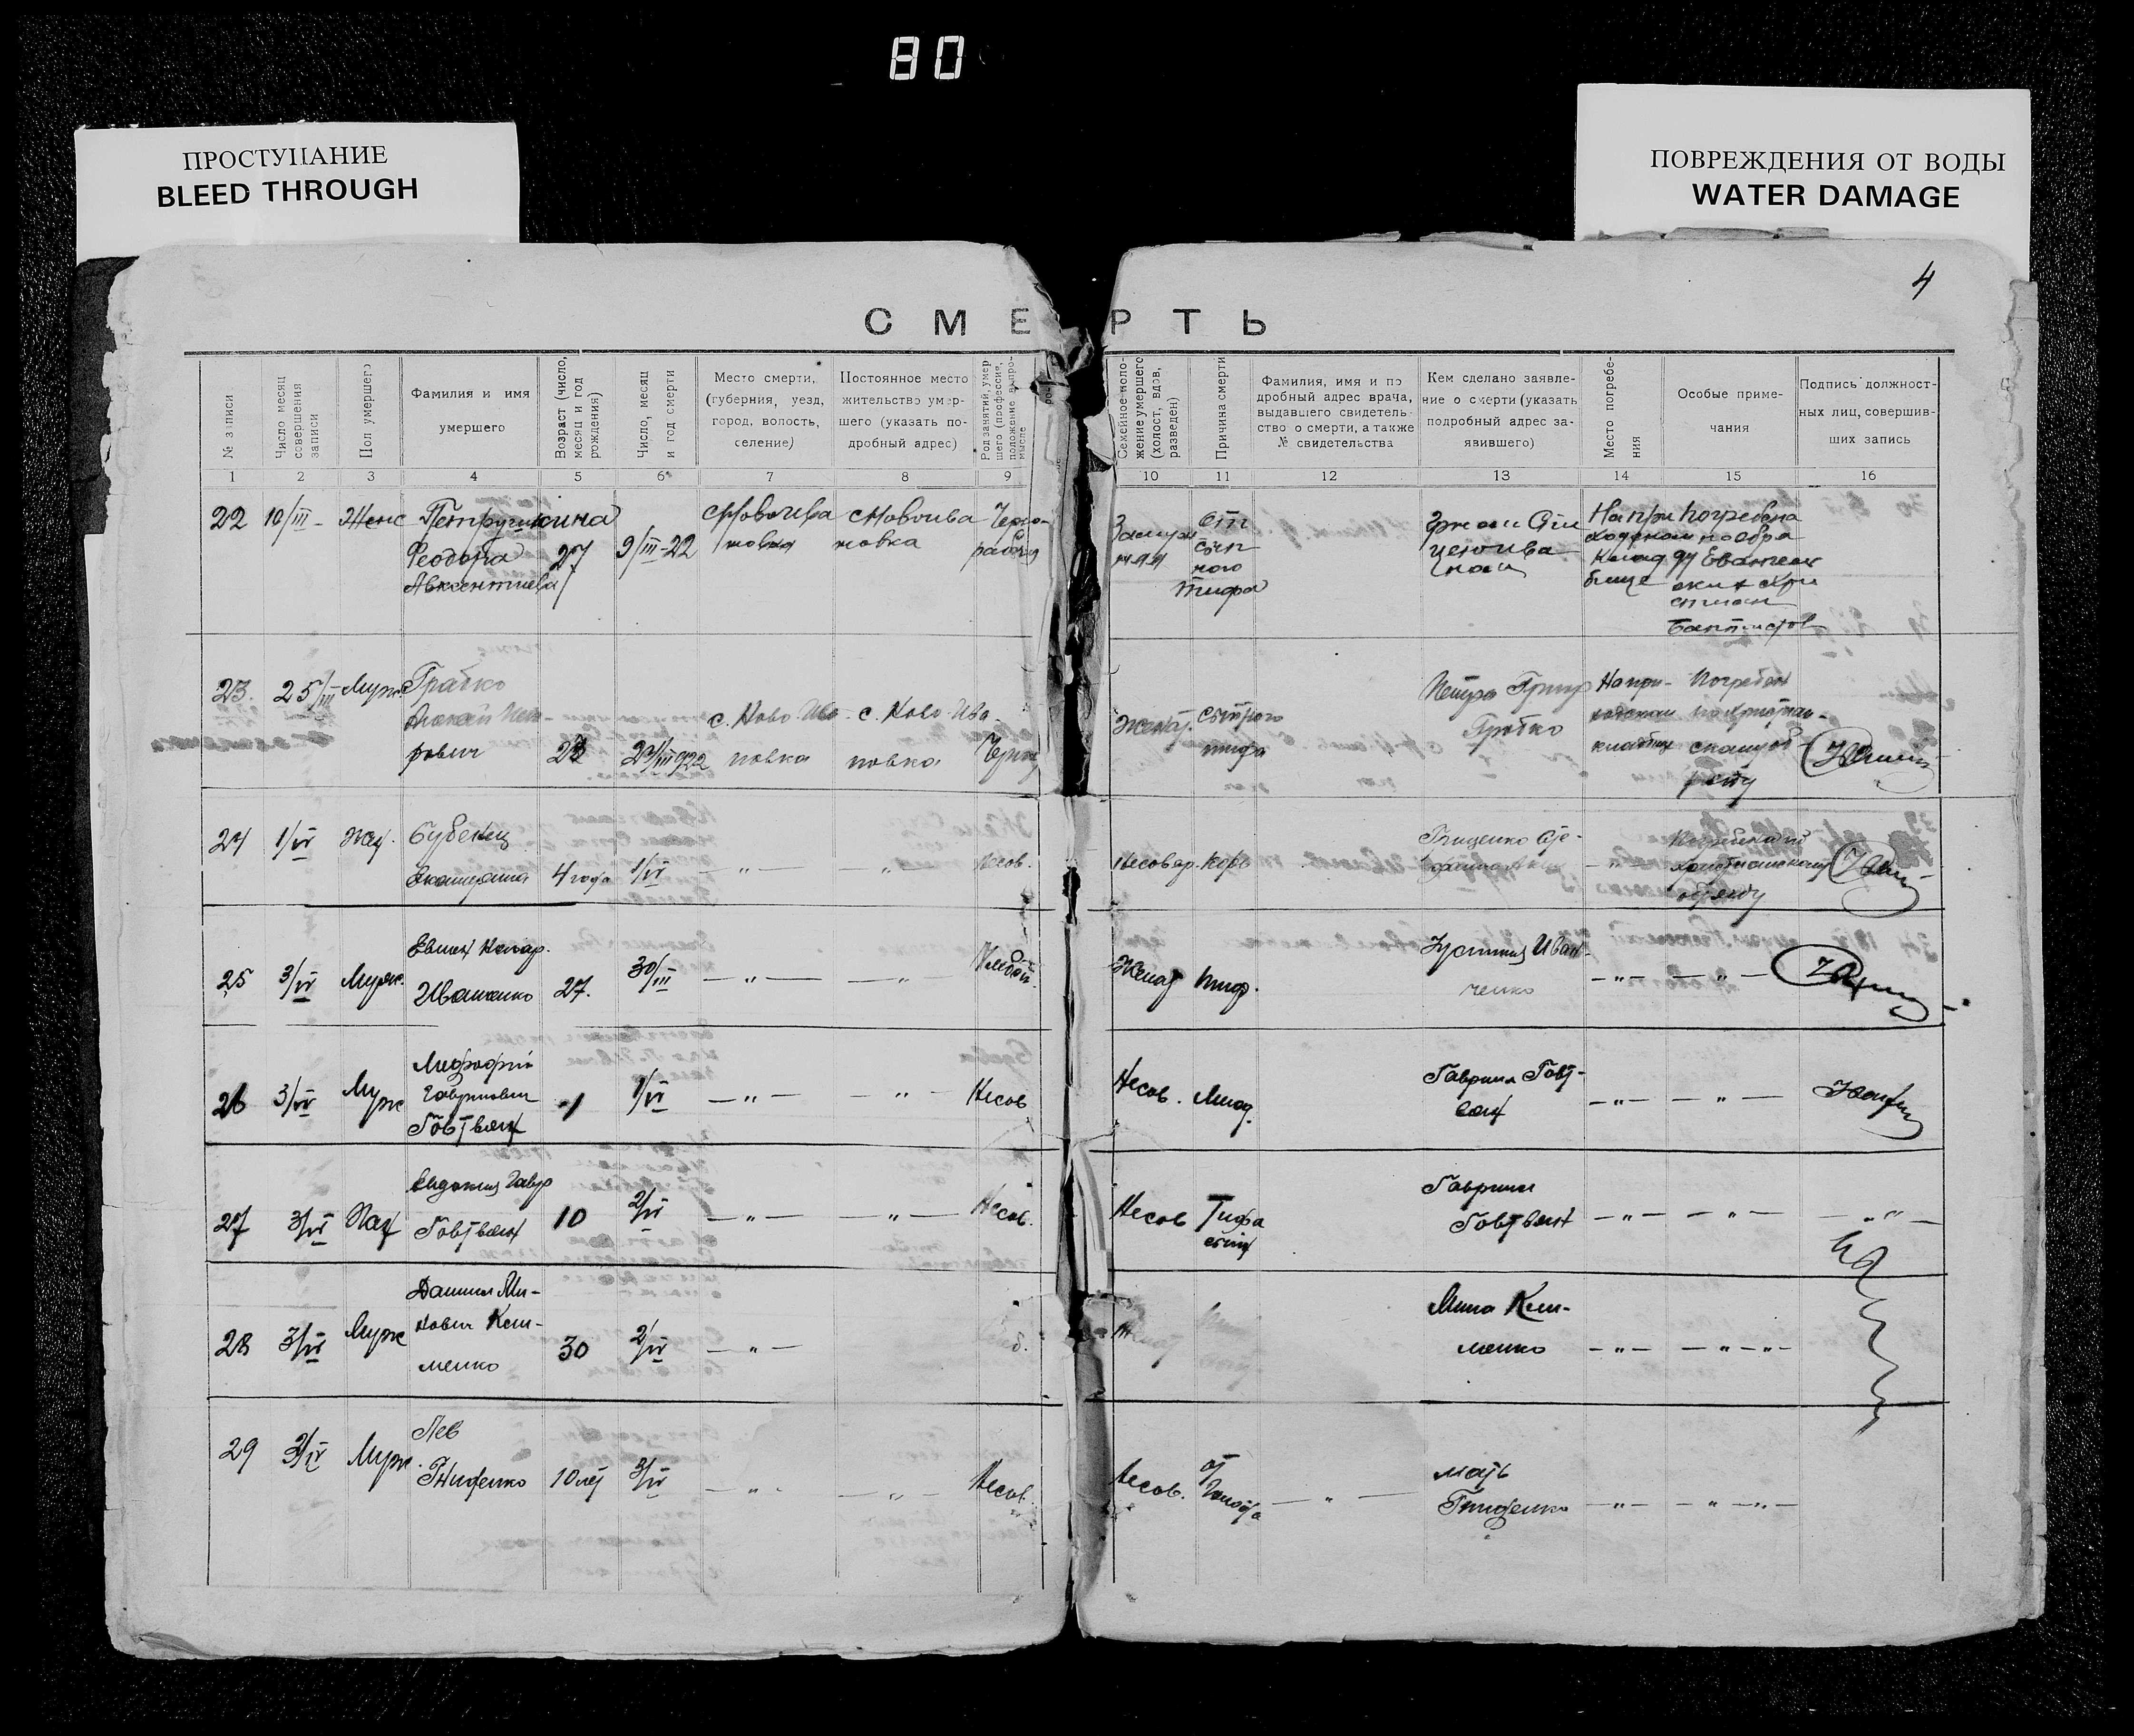 80
ПРОСТУПАНИЕ
BLEED THROUGH
ПОВРЕЖДЕНИЯ ОТ ВОДЫ
WATER DAMAGE
4
СМЕРТЬ
№ записи
Число месяц
совершения
записи
Пол умершего
Фамилия и имя
умершего
Возраст (число,
месяц и год
рождения)
Число, месяц
и год смерти
Место смерти,
(губерния, уезд,
город, волость,
селение)
Постоянное место
жительство умер-
шего (указать по-
дробный адрес)
Род занятий, умер
шего (профессия,
положение в про-
мысле
Семейное поло-
жение умершего
(холост, вдов,
разведен)
Причина смерти
Фамилия, имя и по
дробный адрес врача,
выдавшего свидетель-
ство о смерти, а также
№ свидетельства
Кем сделано заявле-
ние о смерти (указать
подробный адрес за-
явившего)
Место погребе-
ния
Особые приме-
чания
Подпись должност-
ных лиц, совершив-
ших запись
1 2 3 4 5 6 7 8 9 10 11 12 13 14 15 16
22 10/III Женс Петрушкина
Феодора
Авксентиева
27 9/III-22
Новоива
новка
Новоива
новка
Черно-
рабоч
Замуж
няя
От
сып
ного
тифа
На при
ходском
клад
бище
Погребена
по обря
ду Евангель
ских хри
стиан
Баптистов
23. 25/III Муж Грабко
Пет-
рович
23/III 922
с. Ново-Ива-
новка
с. Ново-Ива-
новка
Женат. Сыпного
тифа
Петра Григор
Грабко
На при-
ходском
кладбище
Погребен
24 1/IV Жен. Бубенец
Екатерина 4 года 1/IV — " — — " — Несов.
Несовер. Корь
Погребена по
Христианскому
обряду
25 3/IV Муж.
Иваненко 27. 30/III — " — — " — Хлебоп.
Женат Тиф.
Иван-
ченко
— " — — " —
26 3/IV Муж
Мефодий
Гаврилович
Говтвян
1 1/IV — " — — " — Несов
Несов. Млад.
Гаврил Говт-
вян
— " — — " —
27 3/IV Жен
Евдокия Гавр
Говтвян 10 2/IV — " — — " — Несов.
Несов Тифа
сып
Гаврил
Говтвян — " — — " — — " —
28 3/IV Муж
Даниил Ми-
нович Кли-
менко
30 2/IV — " —
Женат
Мина Кли-
менко — " — — " — " —
29 3/IV Муж.
Лев
Гниденко 10 лет 3/IV — " — — " — Несов.
Несов. от
Голода — " —
мать
Гниденко — " — — " — " —